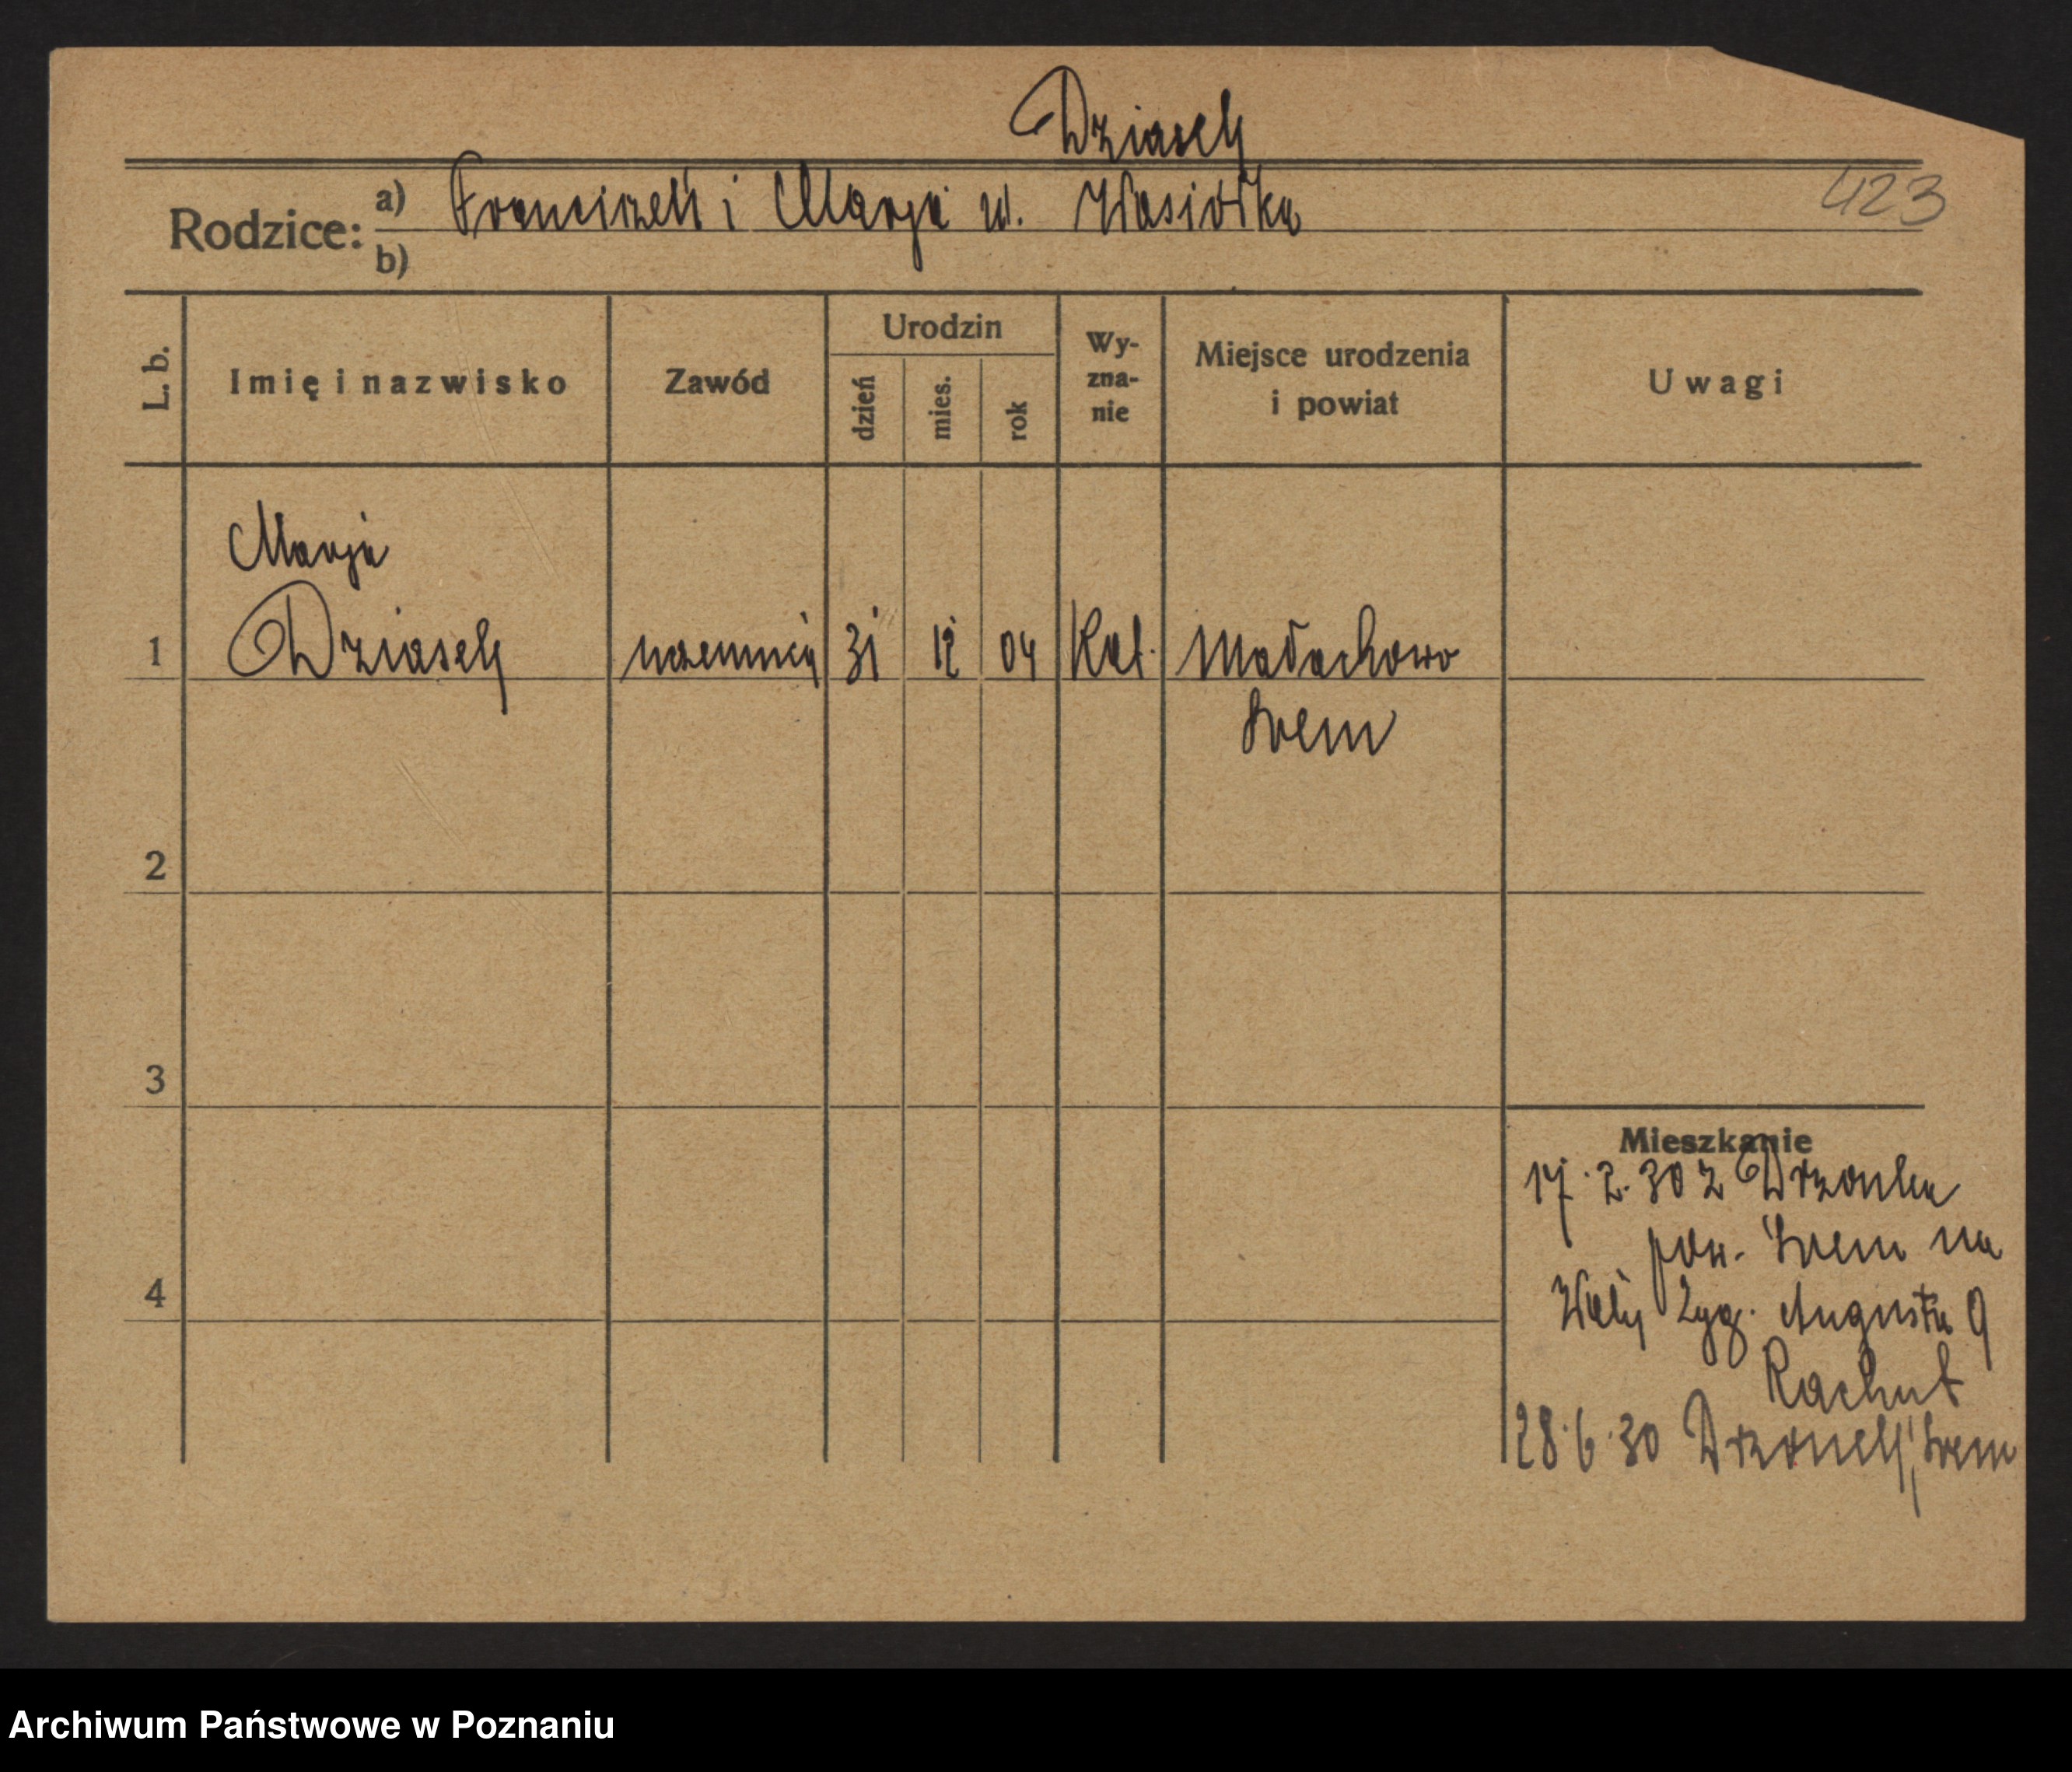 Dziasek
423
Rodzice: a) Franciszek i Marja ur. Wasiołka
b)
L. b. Imię i nazwisko Zawód Urodzin dzień mies. rok Wy-zna-nie Miejsce urodzenia i powiat Uwagi
Marja
1 Dziasek 31 12 04 Kat. Małachowo
Śrem
2
3
Mieszkanie
17.2.30 z Drzonka
pow. Śrem na
4
Wały Zyg. Augusta 9
Rachut
28.6.30 Drzonek, Śrem
Archiwum Państwowe w Poznaniu